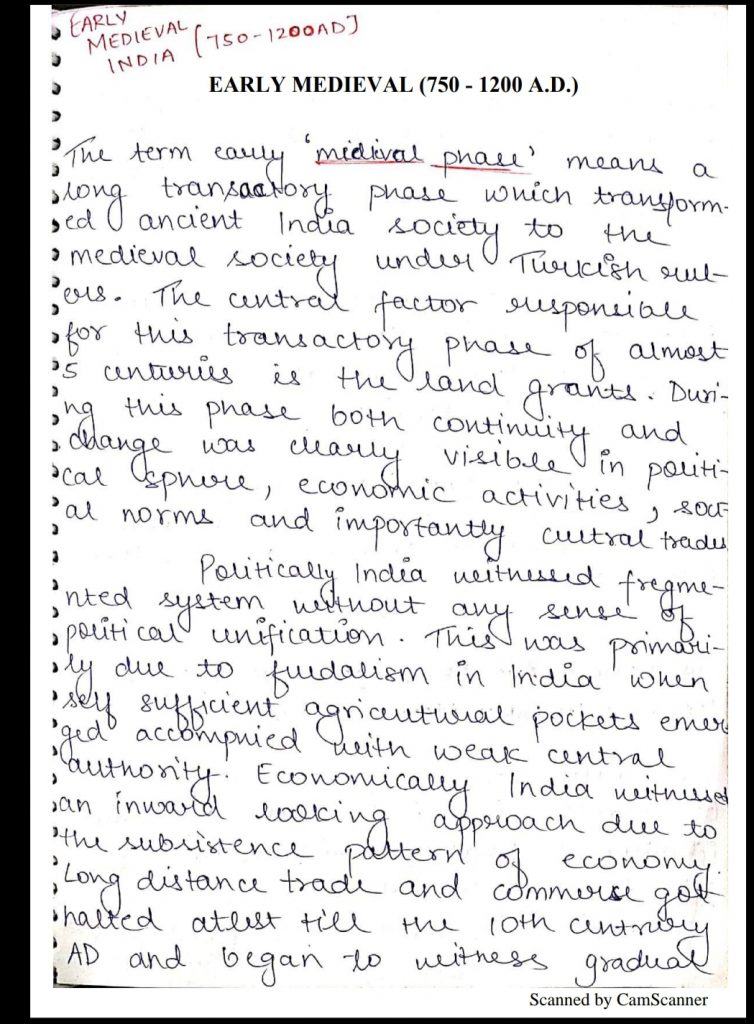 EARLY
MEDIEVAL
INDIA [750-1200AD]
EARLY MEDIEVAL (750 - 1200 A.D.)
The term early 'midieval phase' means a
long transactory phase which transform-
ed ancient India society to the
medieval society under Turkish rul-
ers. The central factor responsible
for this transactory phase of almost
5 centuries is the land grants. Duri-
ng this phase both continuity and
change was clearly visible in politi-
cal sphere, economic activities, soci-
al norms and importantly cultral trades
Politically India witnessed fregme-
nted system without any sense of
political unification. This was primari-
ly due to fuedalism in India when
self sufficient agricultural pockets emer
ged accompnied with weak central
authority. Economically India witnessed
an inward looking approach due to
the subsistence pattern of economy.
Long distance trade and commerse got
halted atlest till the 10th century
AD and began to witness gradual
Scanned by CamScanner